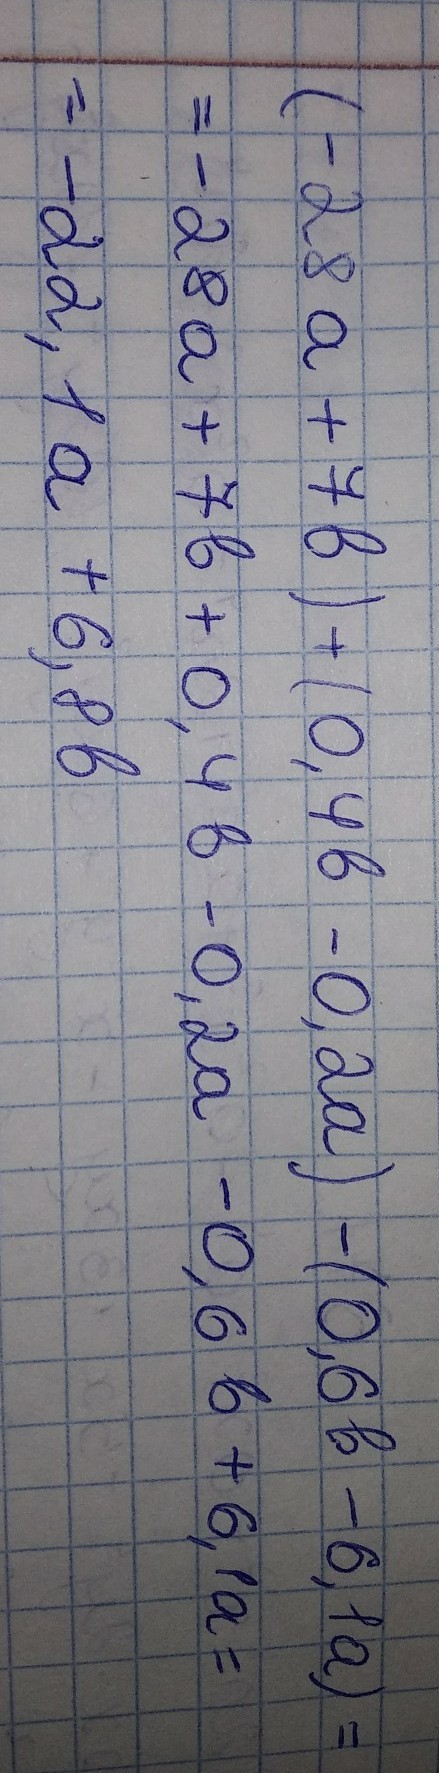 (-28a + 7b) + (0,4b - 0,2a) - (0,6b - 6,1a) =
= - 28a + 7b + 0,4b - 0,2a - 0,6b + 6,1a =
= - 22,1a + 6,8b